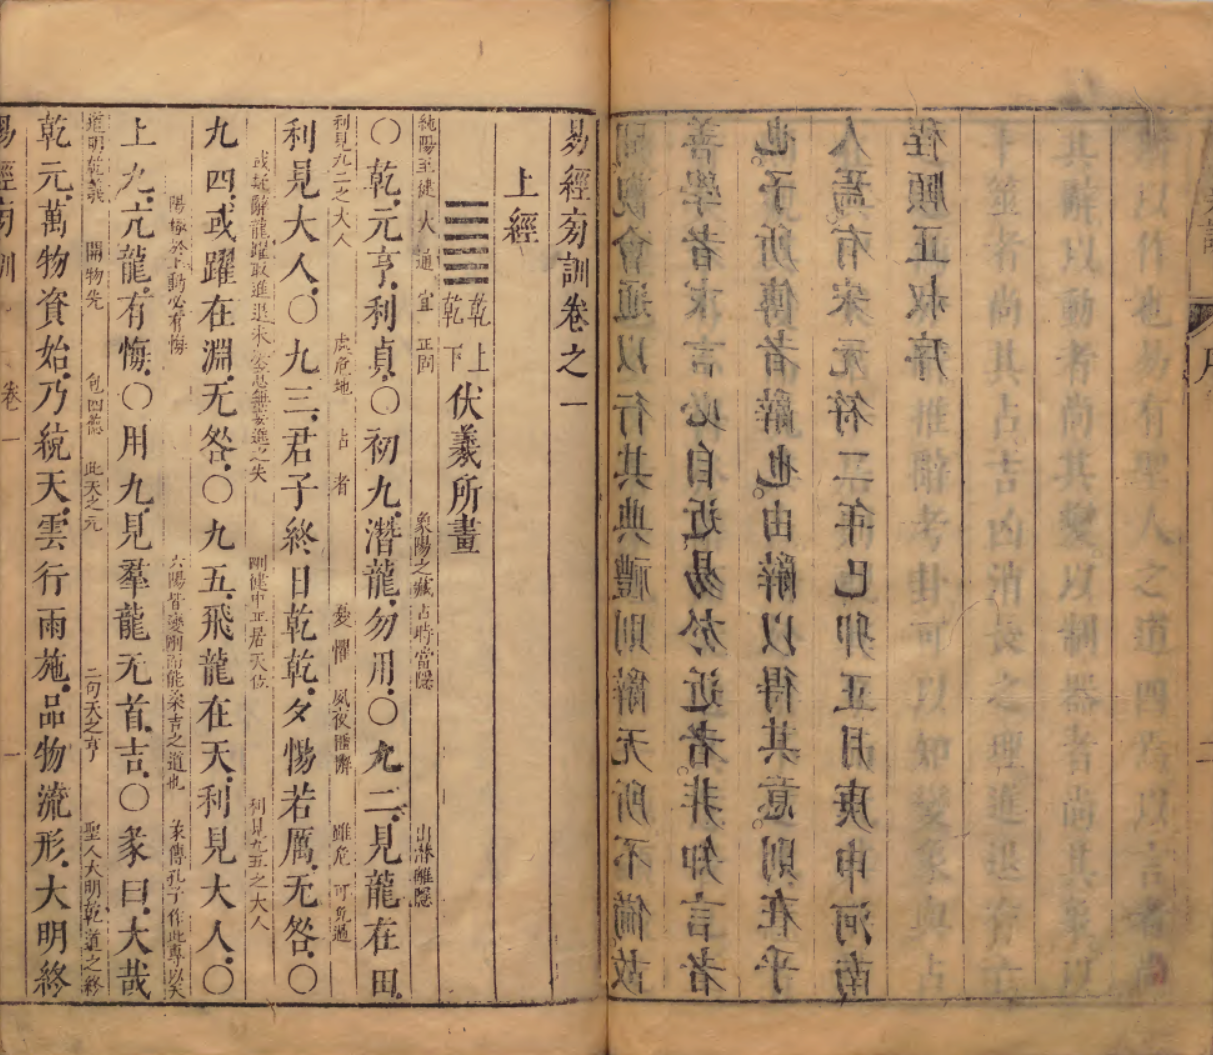 以作也易有聖人之道四焉以言者尚
其辭以動者尚其變以制器者尚其象以
卜筮者尚其占吉凶消長之理進退存亡
推辭考卦可以知變象與占
觀會通以行其典禮則辭无所不備故
善學者求言必自近易於近者非知言者
也予所傳者辭也由辭以得其意則在乎
人焉有宋元符二年己卯正月庚申河南
程頤正叔序
易經旁訓卷之一
上經
乾上 乾下 伏羲所畫
純陽至健 大 通 宜 正固 象陽之藏 占時當隱 出潛離隱
〇乾元亨利貞〇初九潛龍勿用〇九二見龍在田
利見九二之大人 虎危地 占者 憂懼 夙夜匪懈 雖危 可免過
利見大人〇九三君子終日乾乾夕惕若厲无咎〇
剛健中正居天位 利見九五之大人
九四或躍在淵无咎〇九五飛龍在天利見大人〇
陽極於上動必有悔 六陽皆變剛而能柔吉之道也 彖傳孔子作此專以天
上九亢龍有悔〇用九見羣龍无首吉〇彖曰大哉
道明乾義 開物先 包四德 此天之元 二句天之亨 聖人大明乾道之終
乾元萬物資始乃統天雲行雨施品物流形大明終
易經旁訓 卷一 一